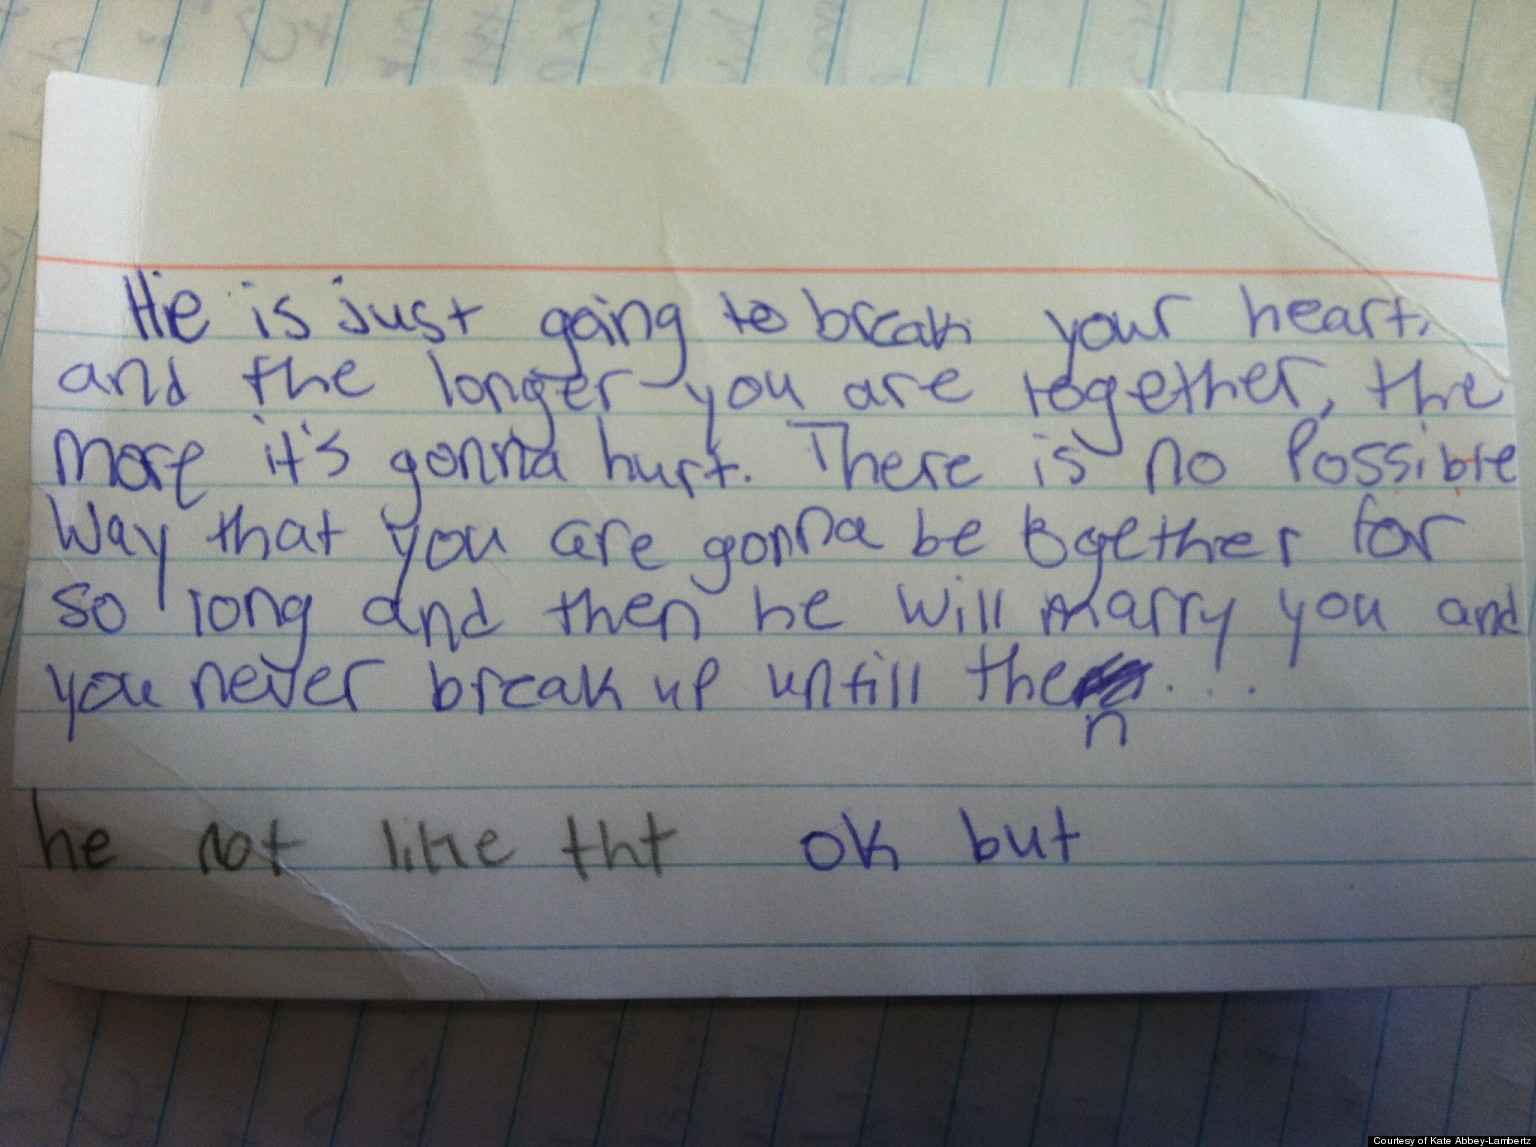 He is just going to break your heart,
and the longer you are together, the
more it's gonna hurt. There is no Possible
Way that you are gonna be together for
so long and then he will marry you and
you never break up untill then...
he not like tht ok but
Courtesy of Kate Abbey-Lambertz